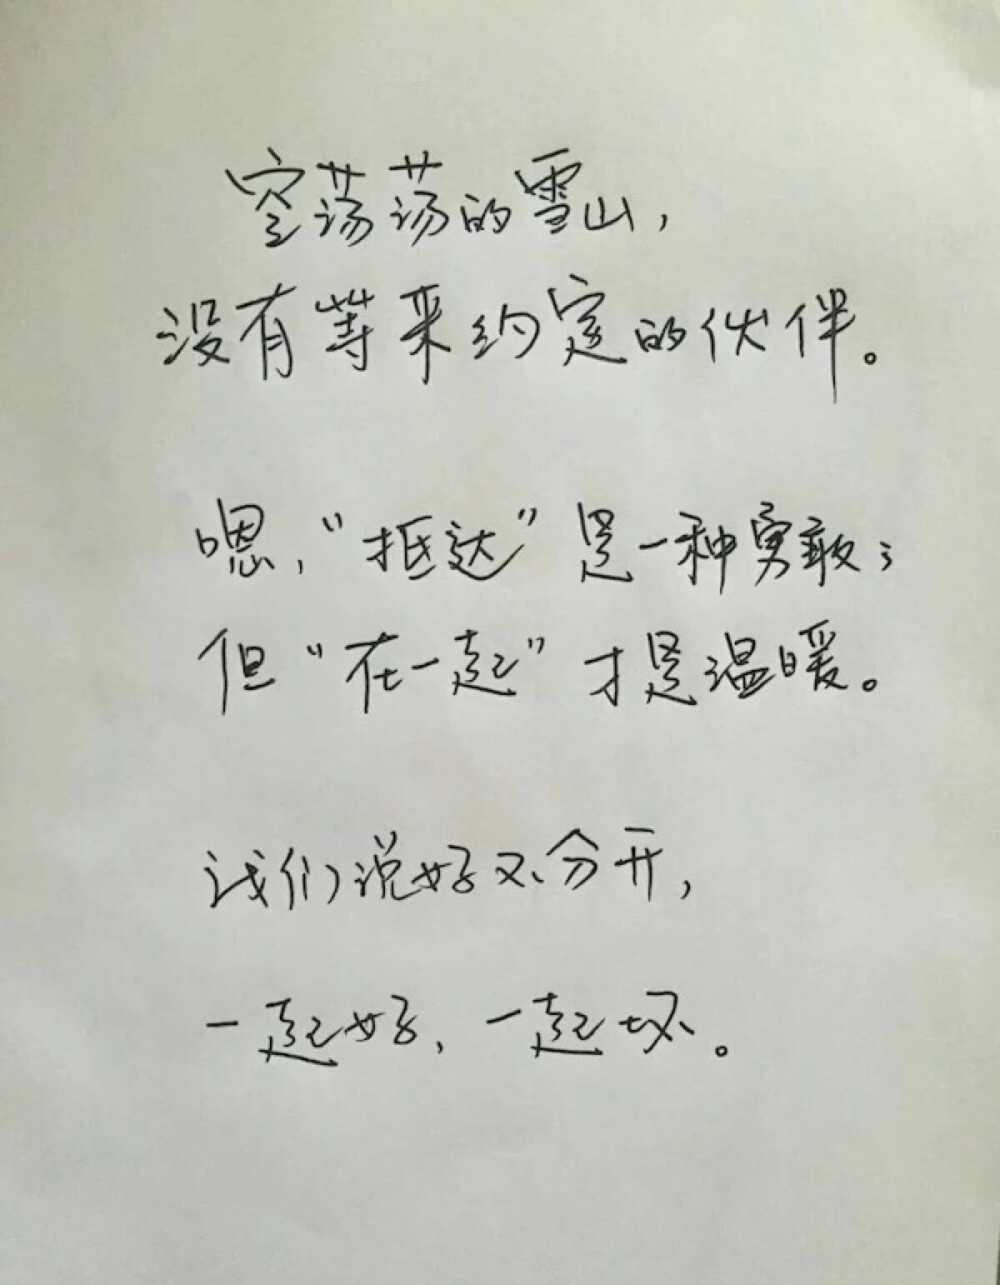 空荡荡的雪山，
没有等来约定的伙伴。
嗯，“抵达”是一种勇敢；
但“在一起”才是温暖。
我们说好不分开，
一起好，一起坏。